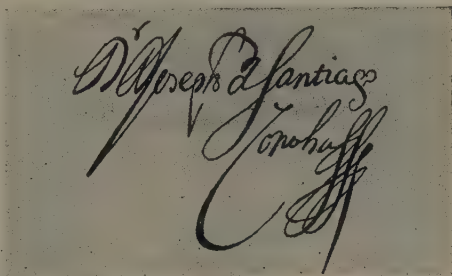 Dr Joseph d Santiago
Concha